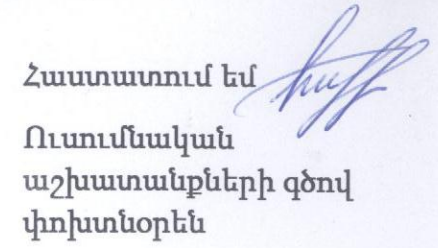 Հաստատում եմ
Ուսումնական
աշխատանքների գծով
փոխտնօրեն